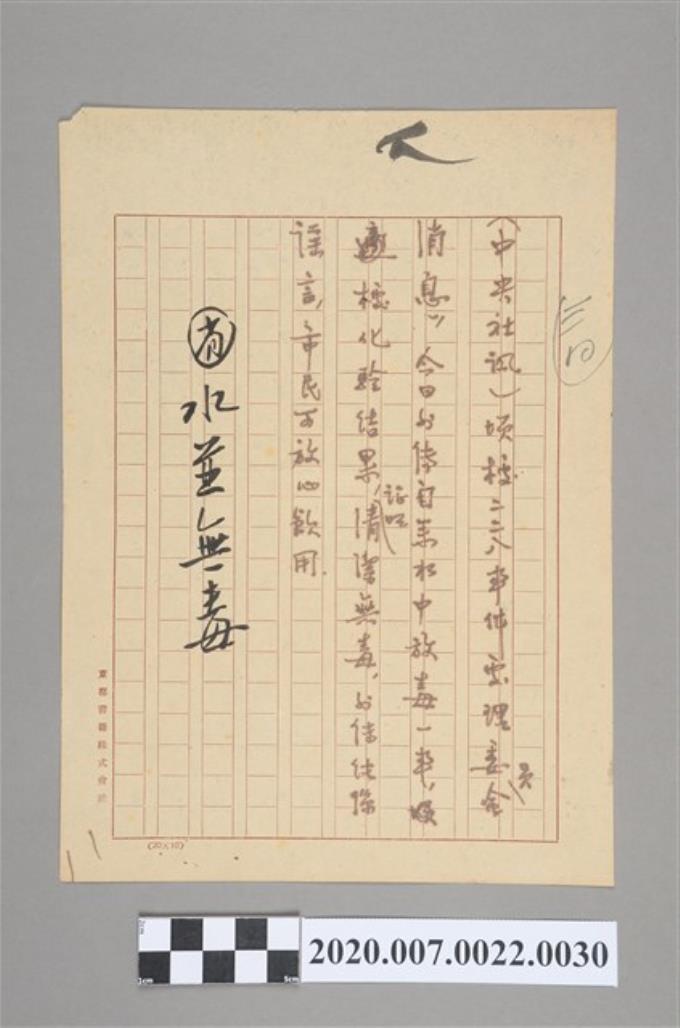 (中央社訊)頃據二二八事件處理委員會
消息,今日外傳自來水中放毒一事,嗣
據化驗結果,證明清潔無毒,外傳純係
謠言,市民可放心飲用.
水並無毒
東都書籍株式會社
(20×10)
2cm
1cm
5cm
2020.007.0022.0030